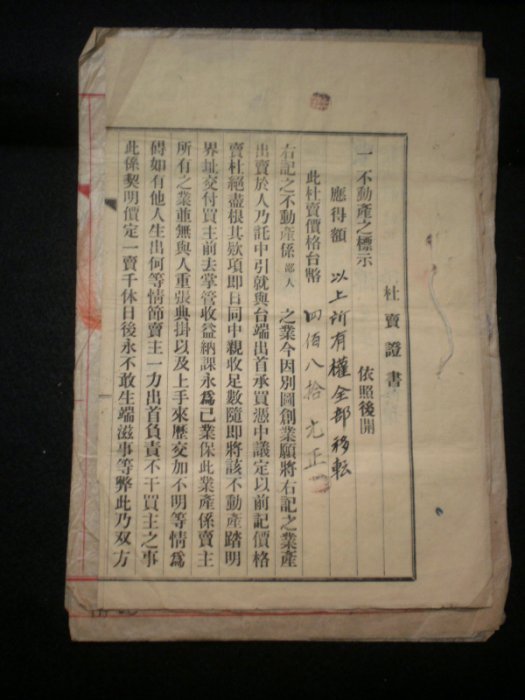 杜賣證書
一 不動產之標示 依照後開
應得額 以上所有權全部移転
此杜賣價格台幣 四佰八拾元正
右記之不動產係鄙人之業今因別圖創業願將右記之業產
出賣於人乃託中引就與台端出首承買憑中議定以前記價格
賣杜絕盡根其欵項即日同中親收足數隨即將該不動產踏明
界址交付買主前去掌管收益納課永為己業保此業產係賣主
所有之業並無與人重張典掛以及上手來歷交加不明等情為
碍如有他人生出何等情節賣主一力出首負責不干買主之事
此係契明價定一賣千休日後永不敢生端滋事等弊此乃双方